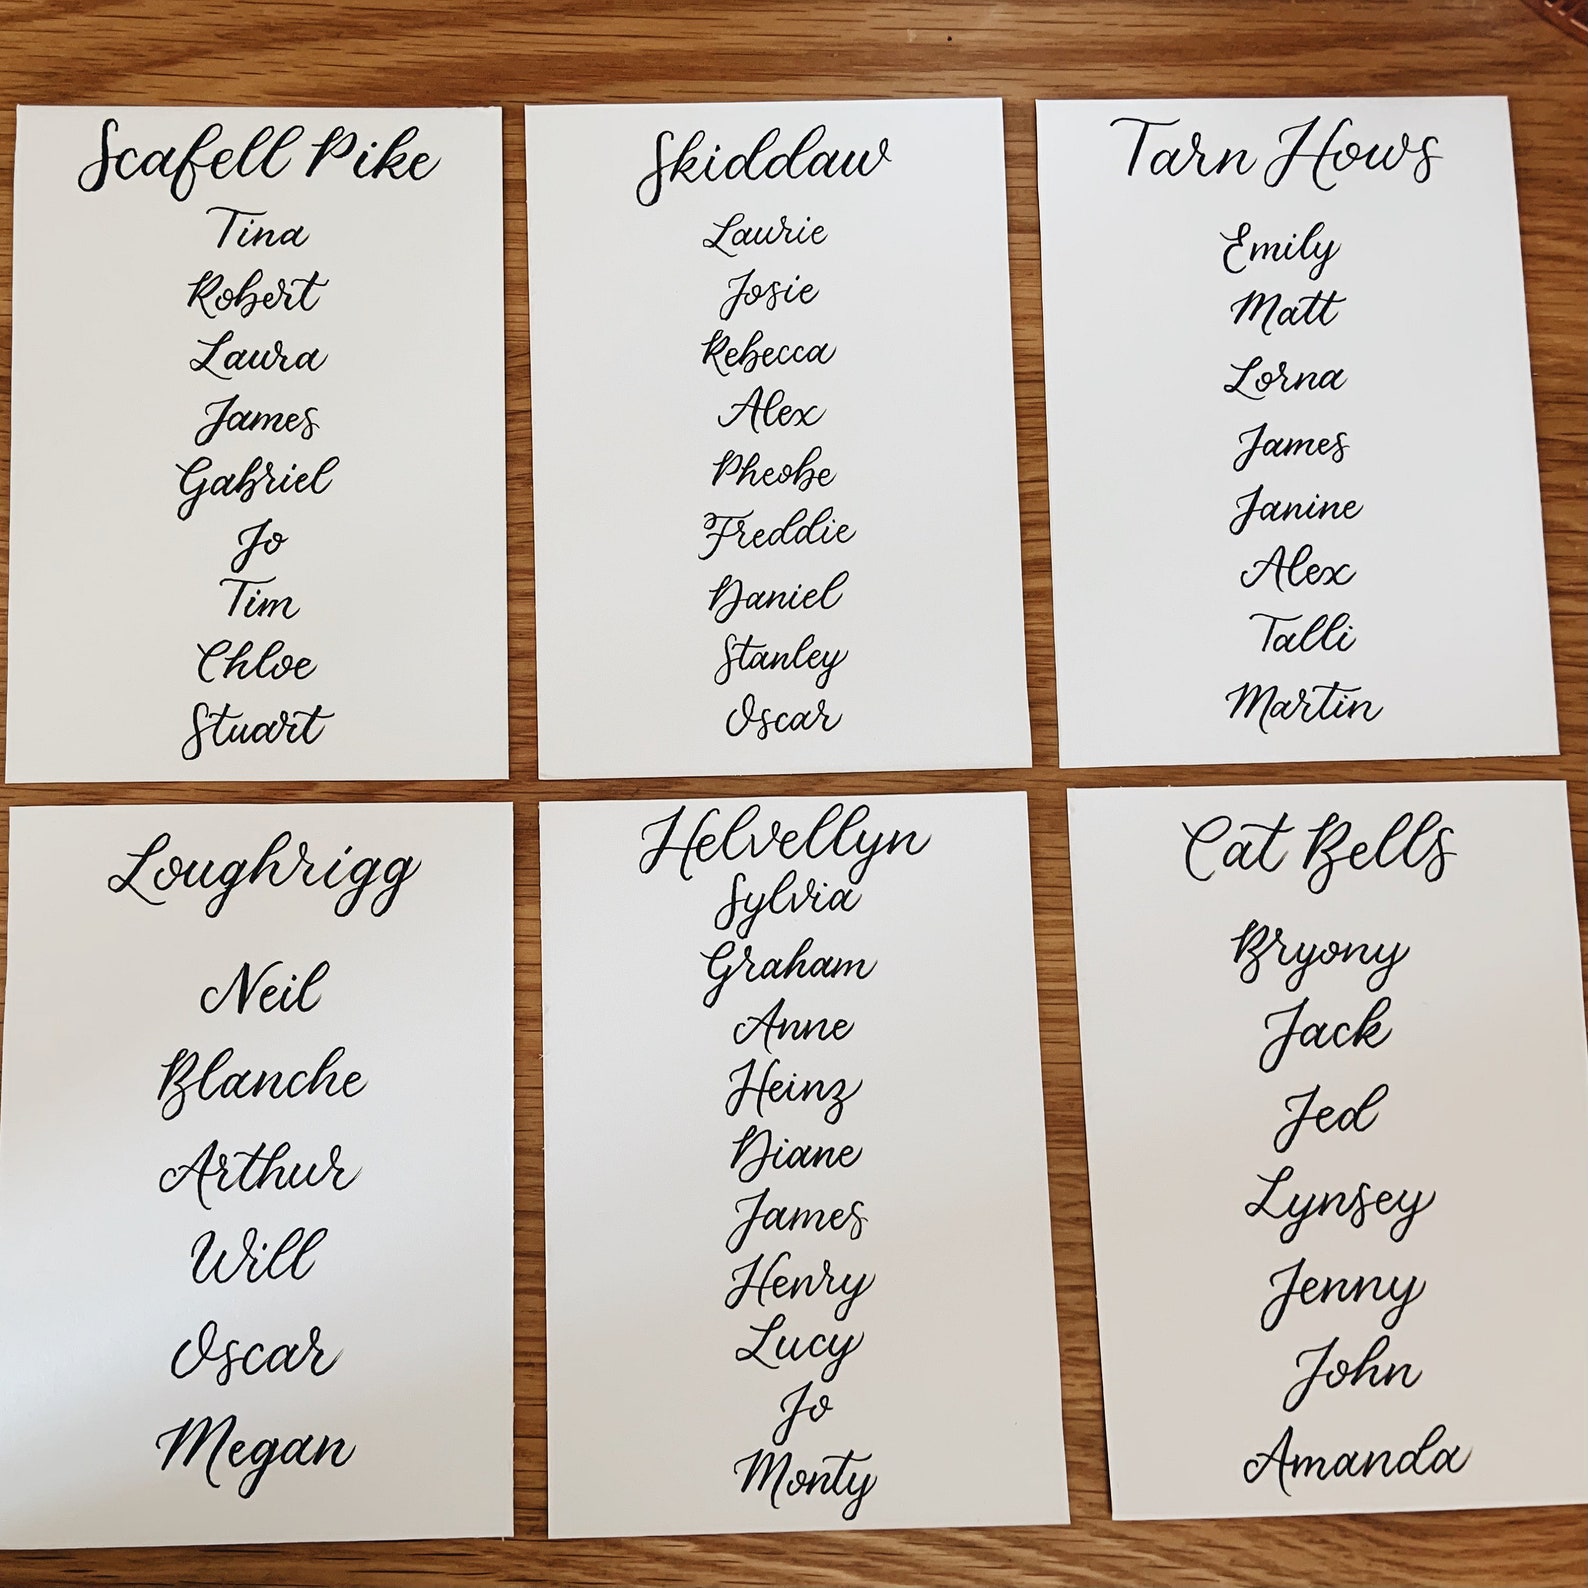 Scafell Pike
Tina
Robert
Laura
James
Gabriel
Jo
Tim
Chloe
Stuart
Skiddaw
Laurie
Josie
Rebecca
Alex
Pheobe
Freddie
Daniel
Stanley
Oscar
Tarn Hows
Emily
Matt
Lorna
James
Janine
Alex
Talli
Martin
Loughrigg
Neil
Blanche
Arthur
Will
Oscar
Megan
Helvellyn
Sylvia
Graham
Anne
Heinz
Diane
James
Henry
Lucy
Jo
Monty
Cat Bells
Bryony
Jack
Jed
Lynsey
Jenny
John
Amanda